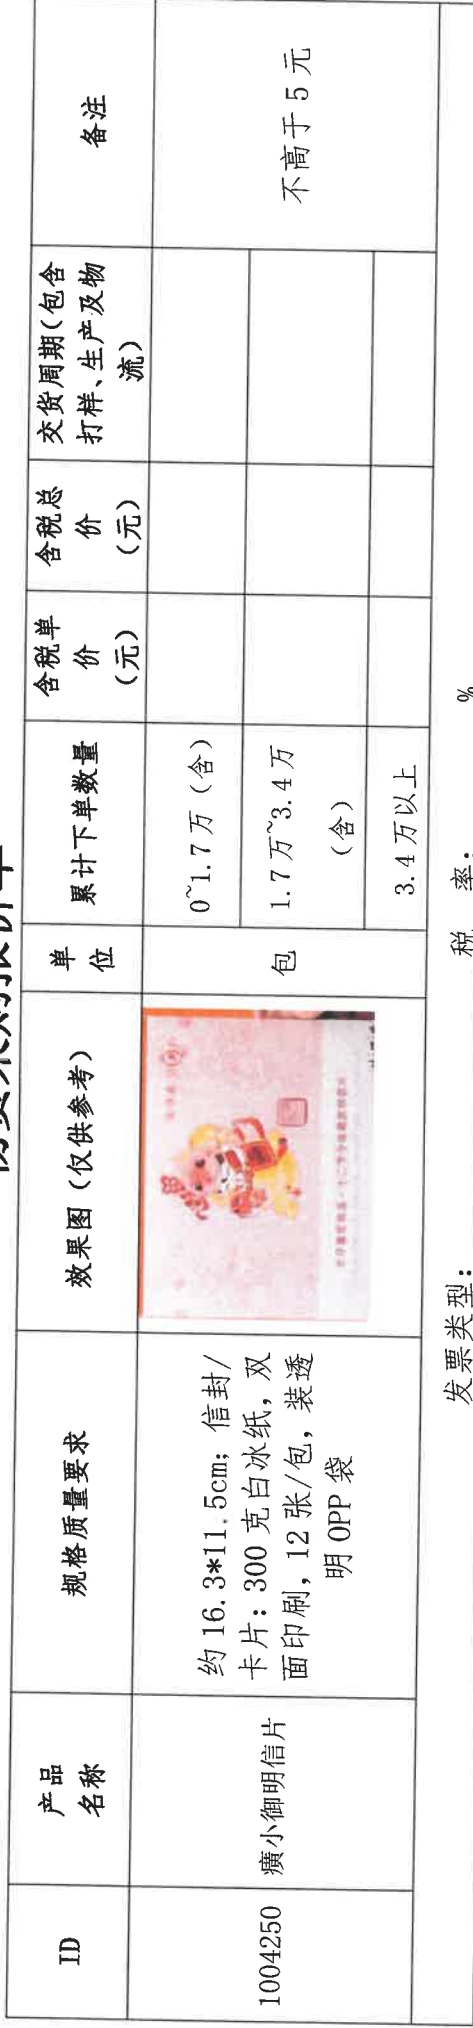 ID
产品
名称
规格质量要求
效果图（仅供参考）
单
位
累计下单数量
含税单
价
（元）
含税总
价
（元）
交货周期（包含
打样、生产及物
流）
备注
1004250
癀小御明信片
约 16.3*11.5cm；信封/
卡片：300 克白冰纸，双
面印刷，12 张/包，装透
明 OPP 袋
包
0~1.7万（含）
1.7万~3.4万
（含）
3.4万以上
不高于 5 元
发票类型：
税 率： %